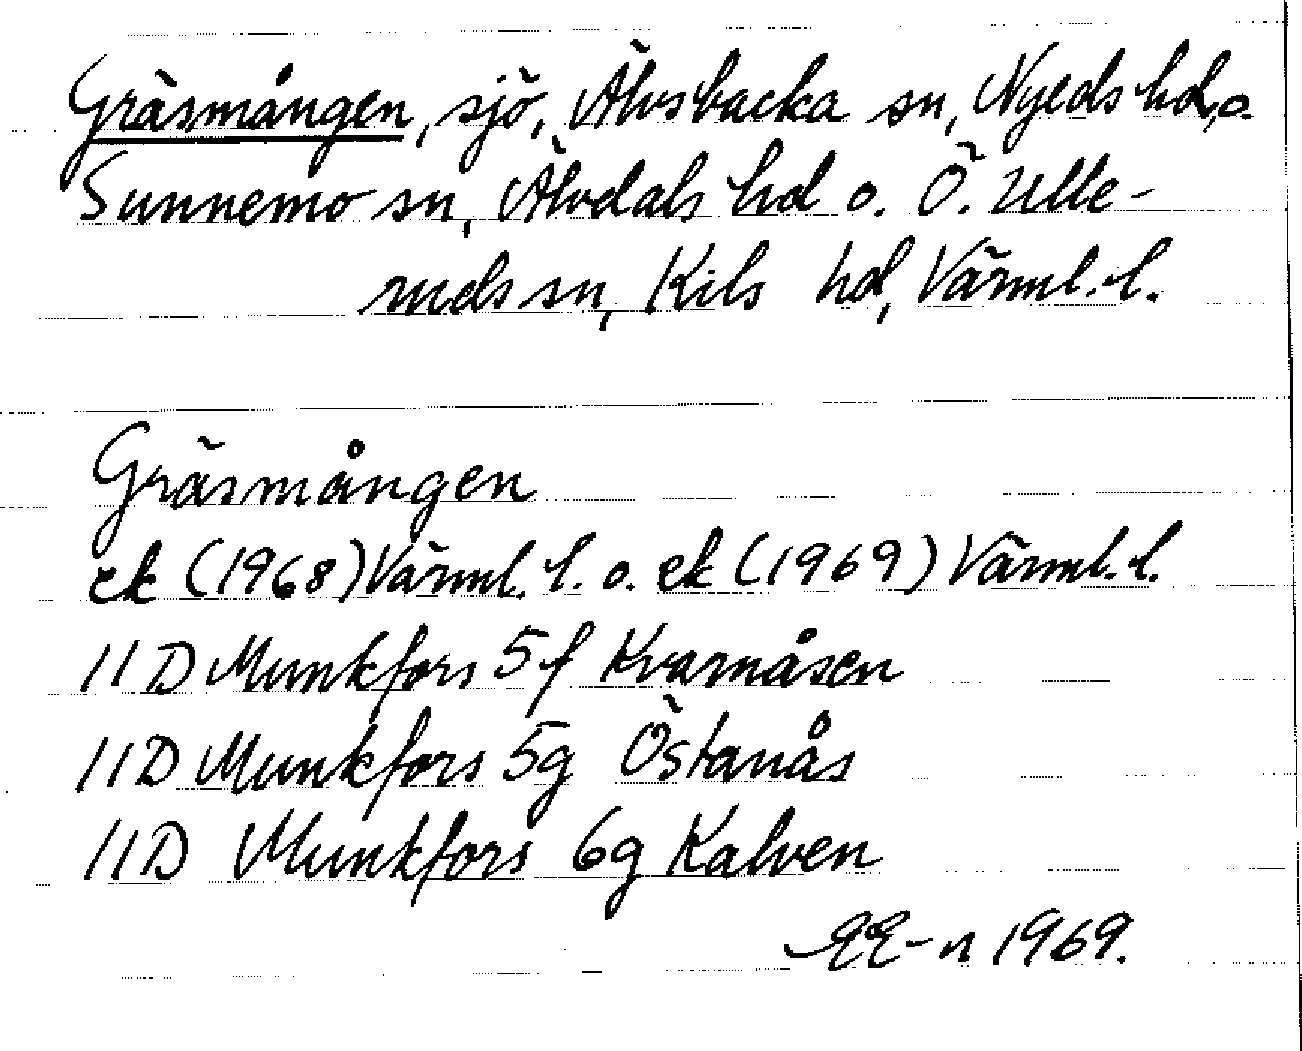 Gräsmången, sjö, Älvsbacka sn, Nyeds hd, o.
Sunnemo sn, Älvdals hd o. Ö. Ulle-
ruds sn, Kils hd, Värml. l.
Gräsmången
ek (1968) Värml. l. o. ek (1969) Värml. l.
11 D Munkfors 5f Kvarnåsen
11D Munkfors 5g Östanås
11D Munkfors 6g Kalven
EE-n 1969.